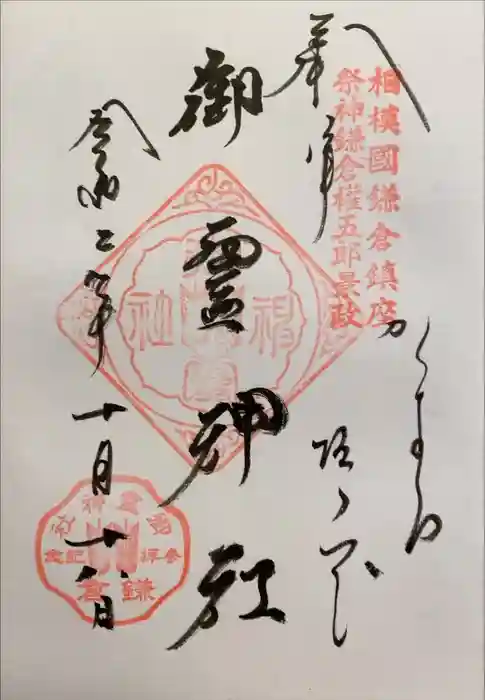 相模國鎌倉鎮座
祭神鎌倉権五郎景政
奉拝
かまくら
坂ノ下
御霊神社
令和二年十月十八日
御霊神社
参拝記念
鎌倉